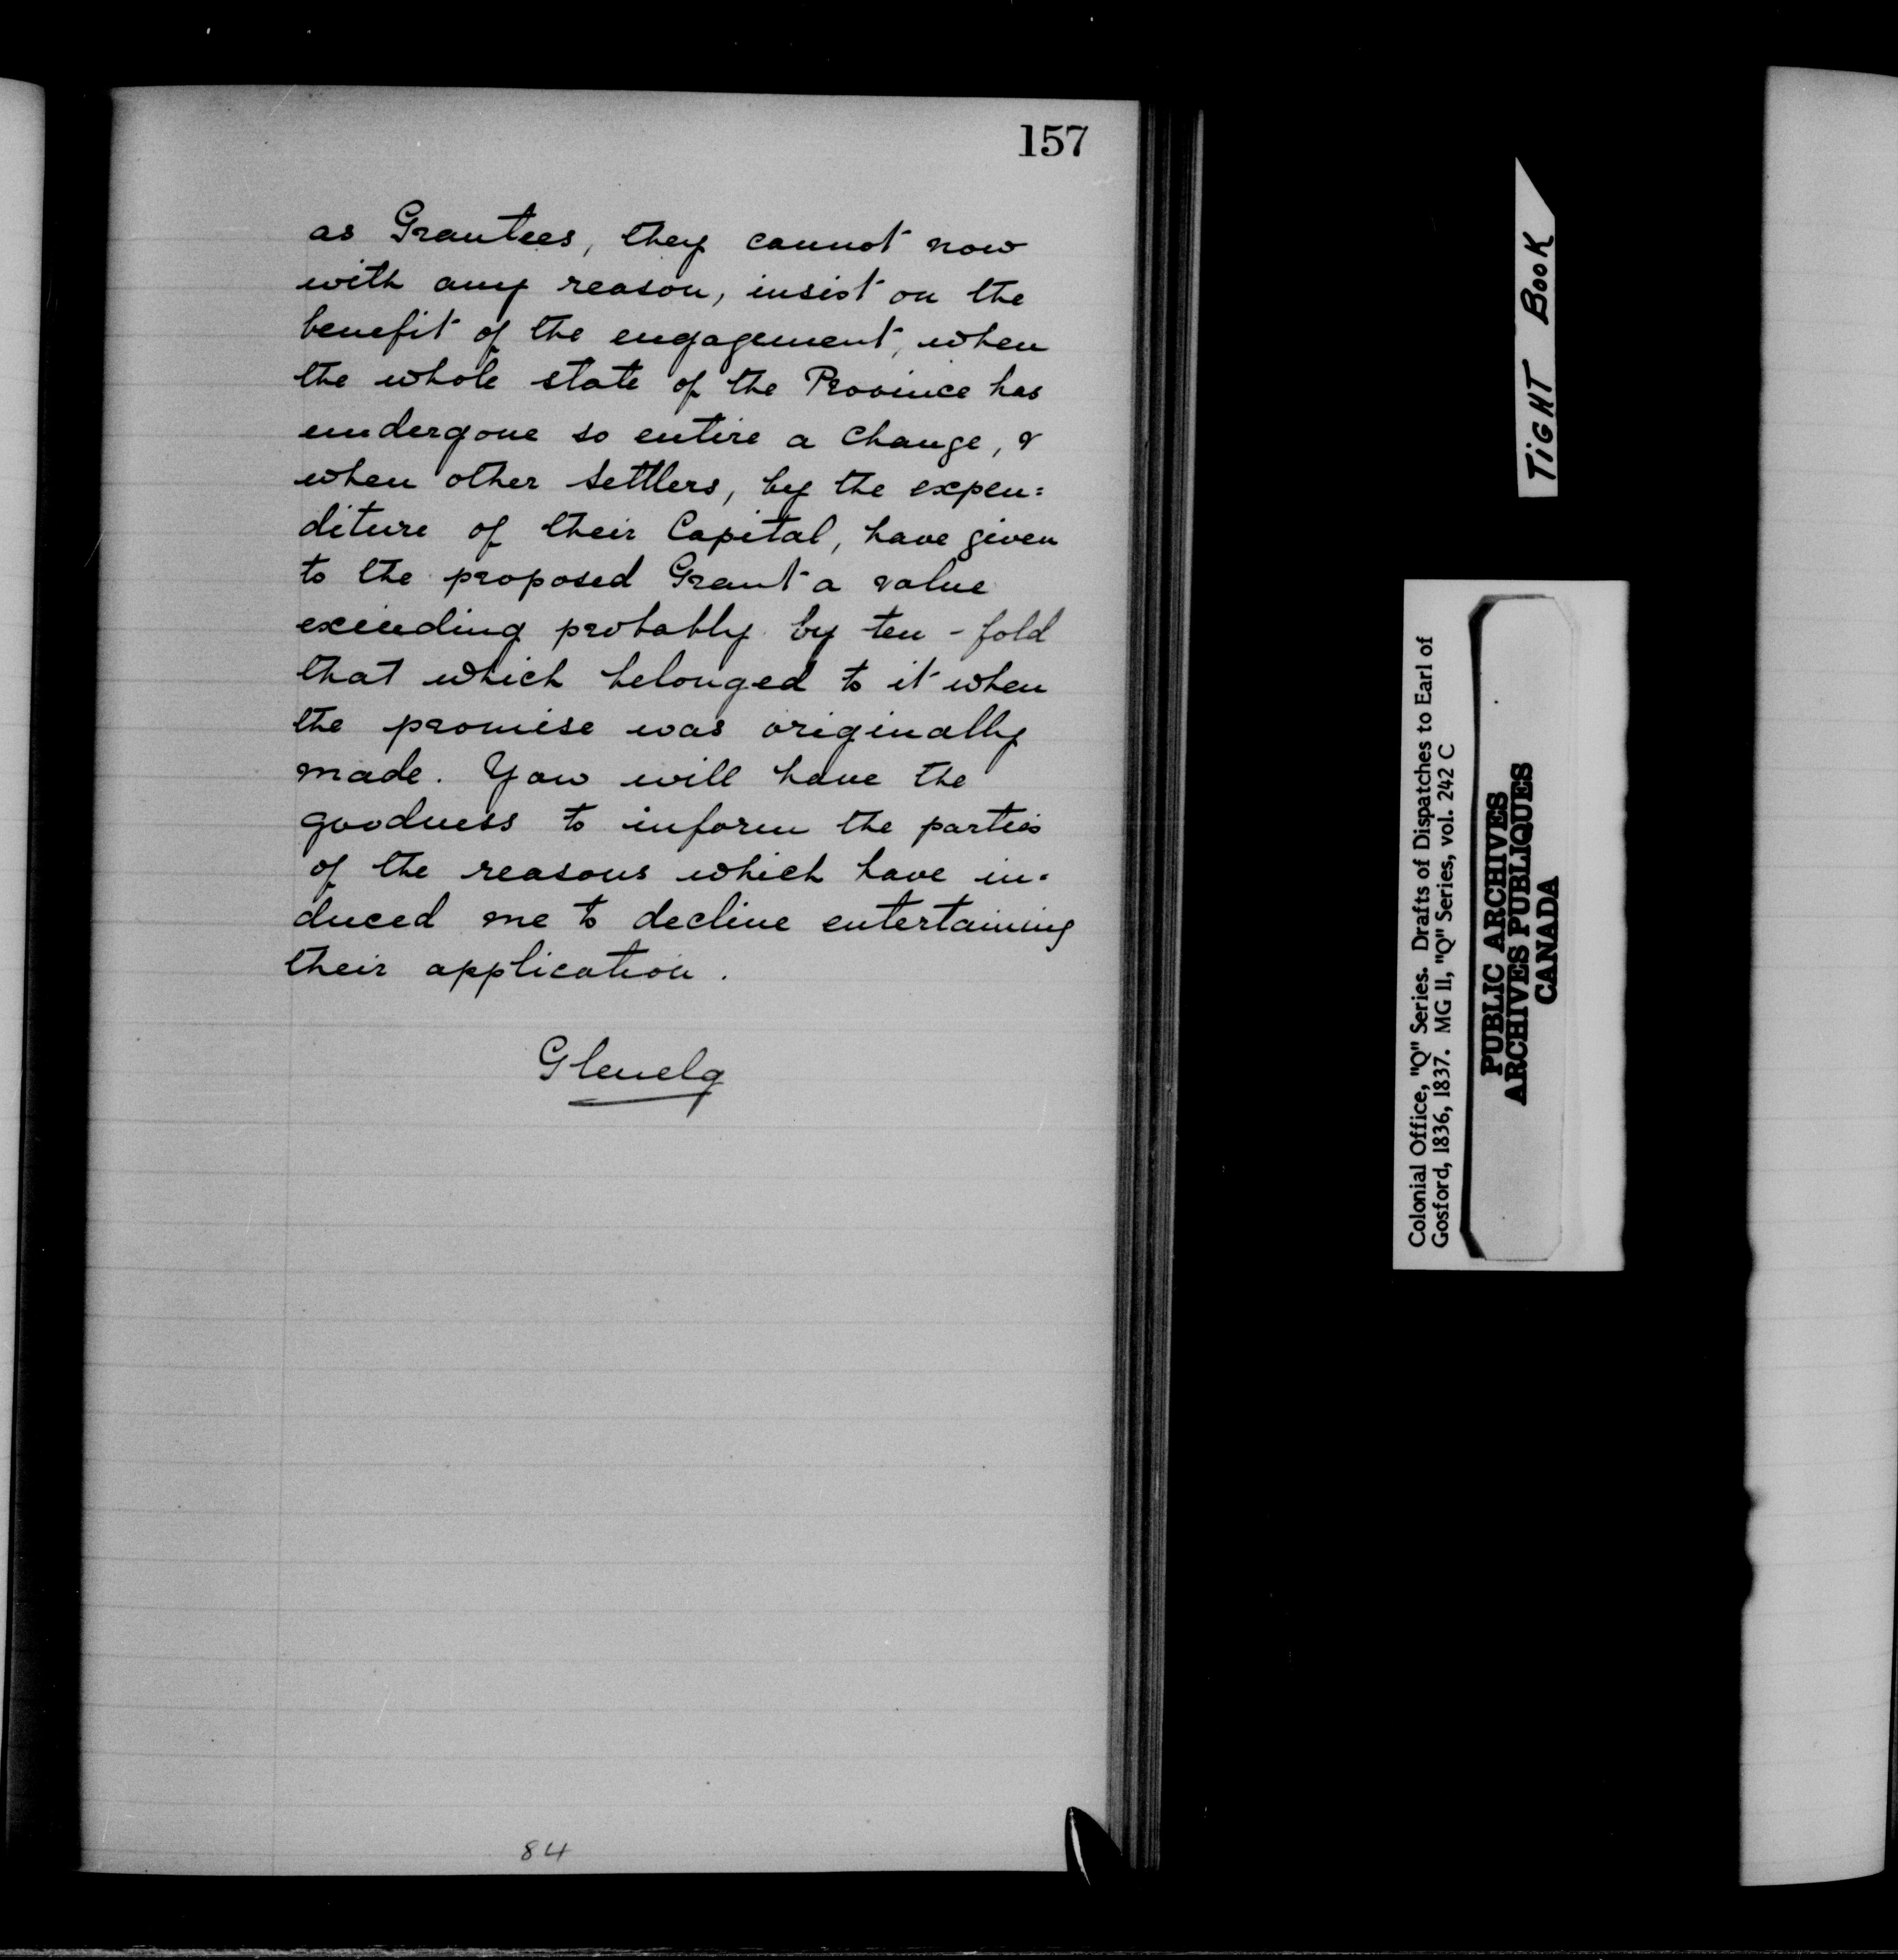 157
as Grantees, they cannot now
with any reason, insist on the
benefit of the engagement, when
the whole state of the Province has
undergone so entire a change, &
when other settlers, by the expen=
diture of their Capital, have given
to the proposed Grant a value
exceeding probably by ten-fold
that which belonged to it when
the promise was originally
made. You will have the
goodness to inform the parties
of the reasons which have in=
duced me to decline entertaining
their application.
Glenelg
84
TIGHT BOOK
Colonial Office, "Q" Series. Drafts of Dispatches to Earl of
Gosford, 1836, 1837. MG 11, "Q" Series, vol. 242 C
PUBLIC ARCHIVES
ARCHIVES PUBLIQUES
CANADA